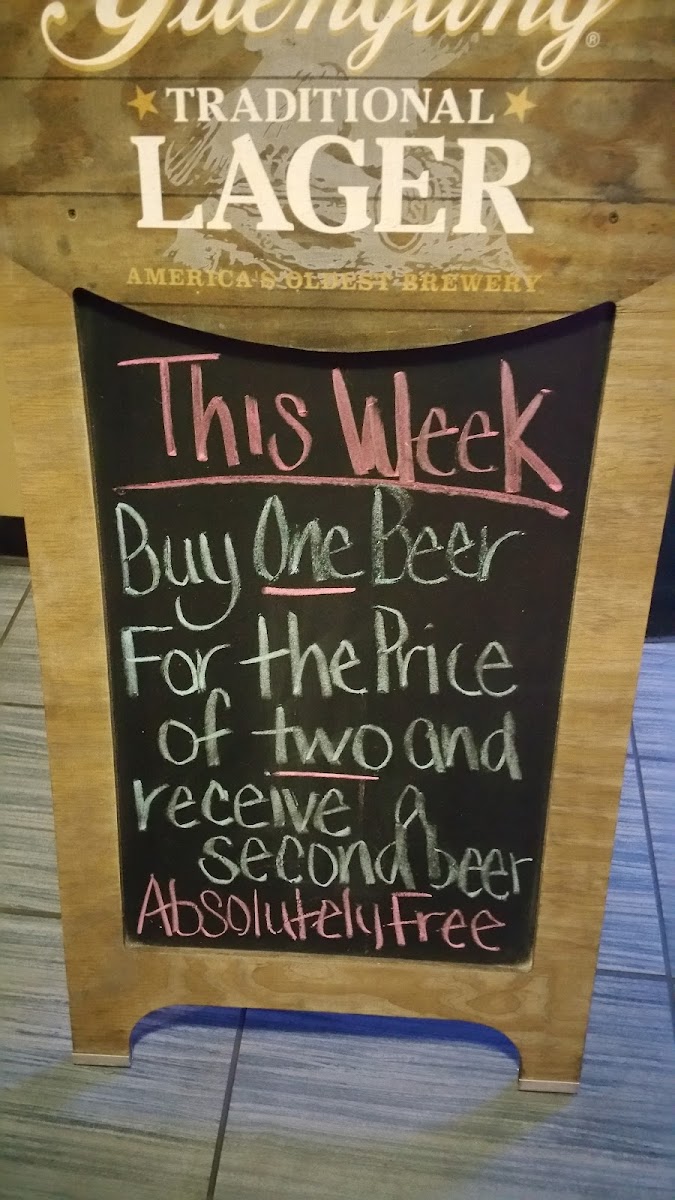 Yuengling®
TRADITIONAL
LAGER
AMERICA'S OLDEST BREWERY
This Week
Buy One Beer
For the Price
of two and
receive a
second beer
Absolutely Free